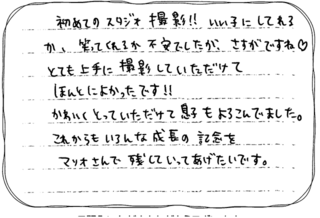 初めてのスタジオ撮影!! いい子にしてれる
か、笑ってくれるか不安でしたが、さすがですね♡
とても上手に撮影していただけて
ほんとによかったです!!
かわいくとっていただけて息子もよろこんでました。
これからもいろんな成長の記念を
マリオさんで残していってあげたいです。